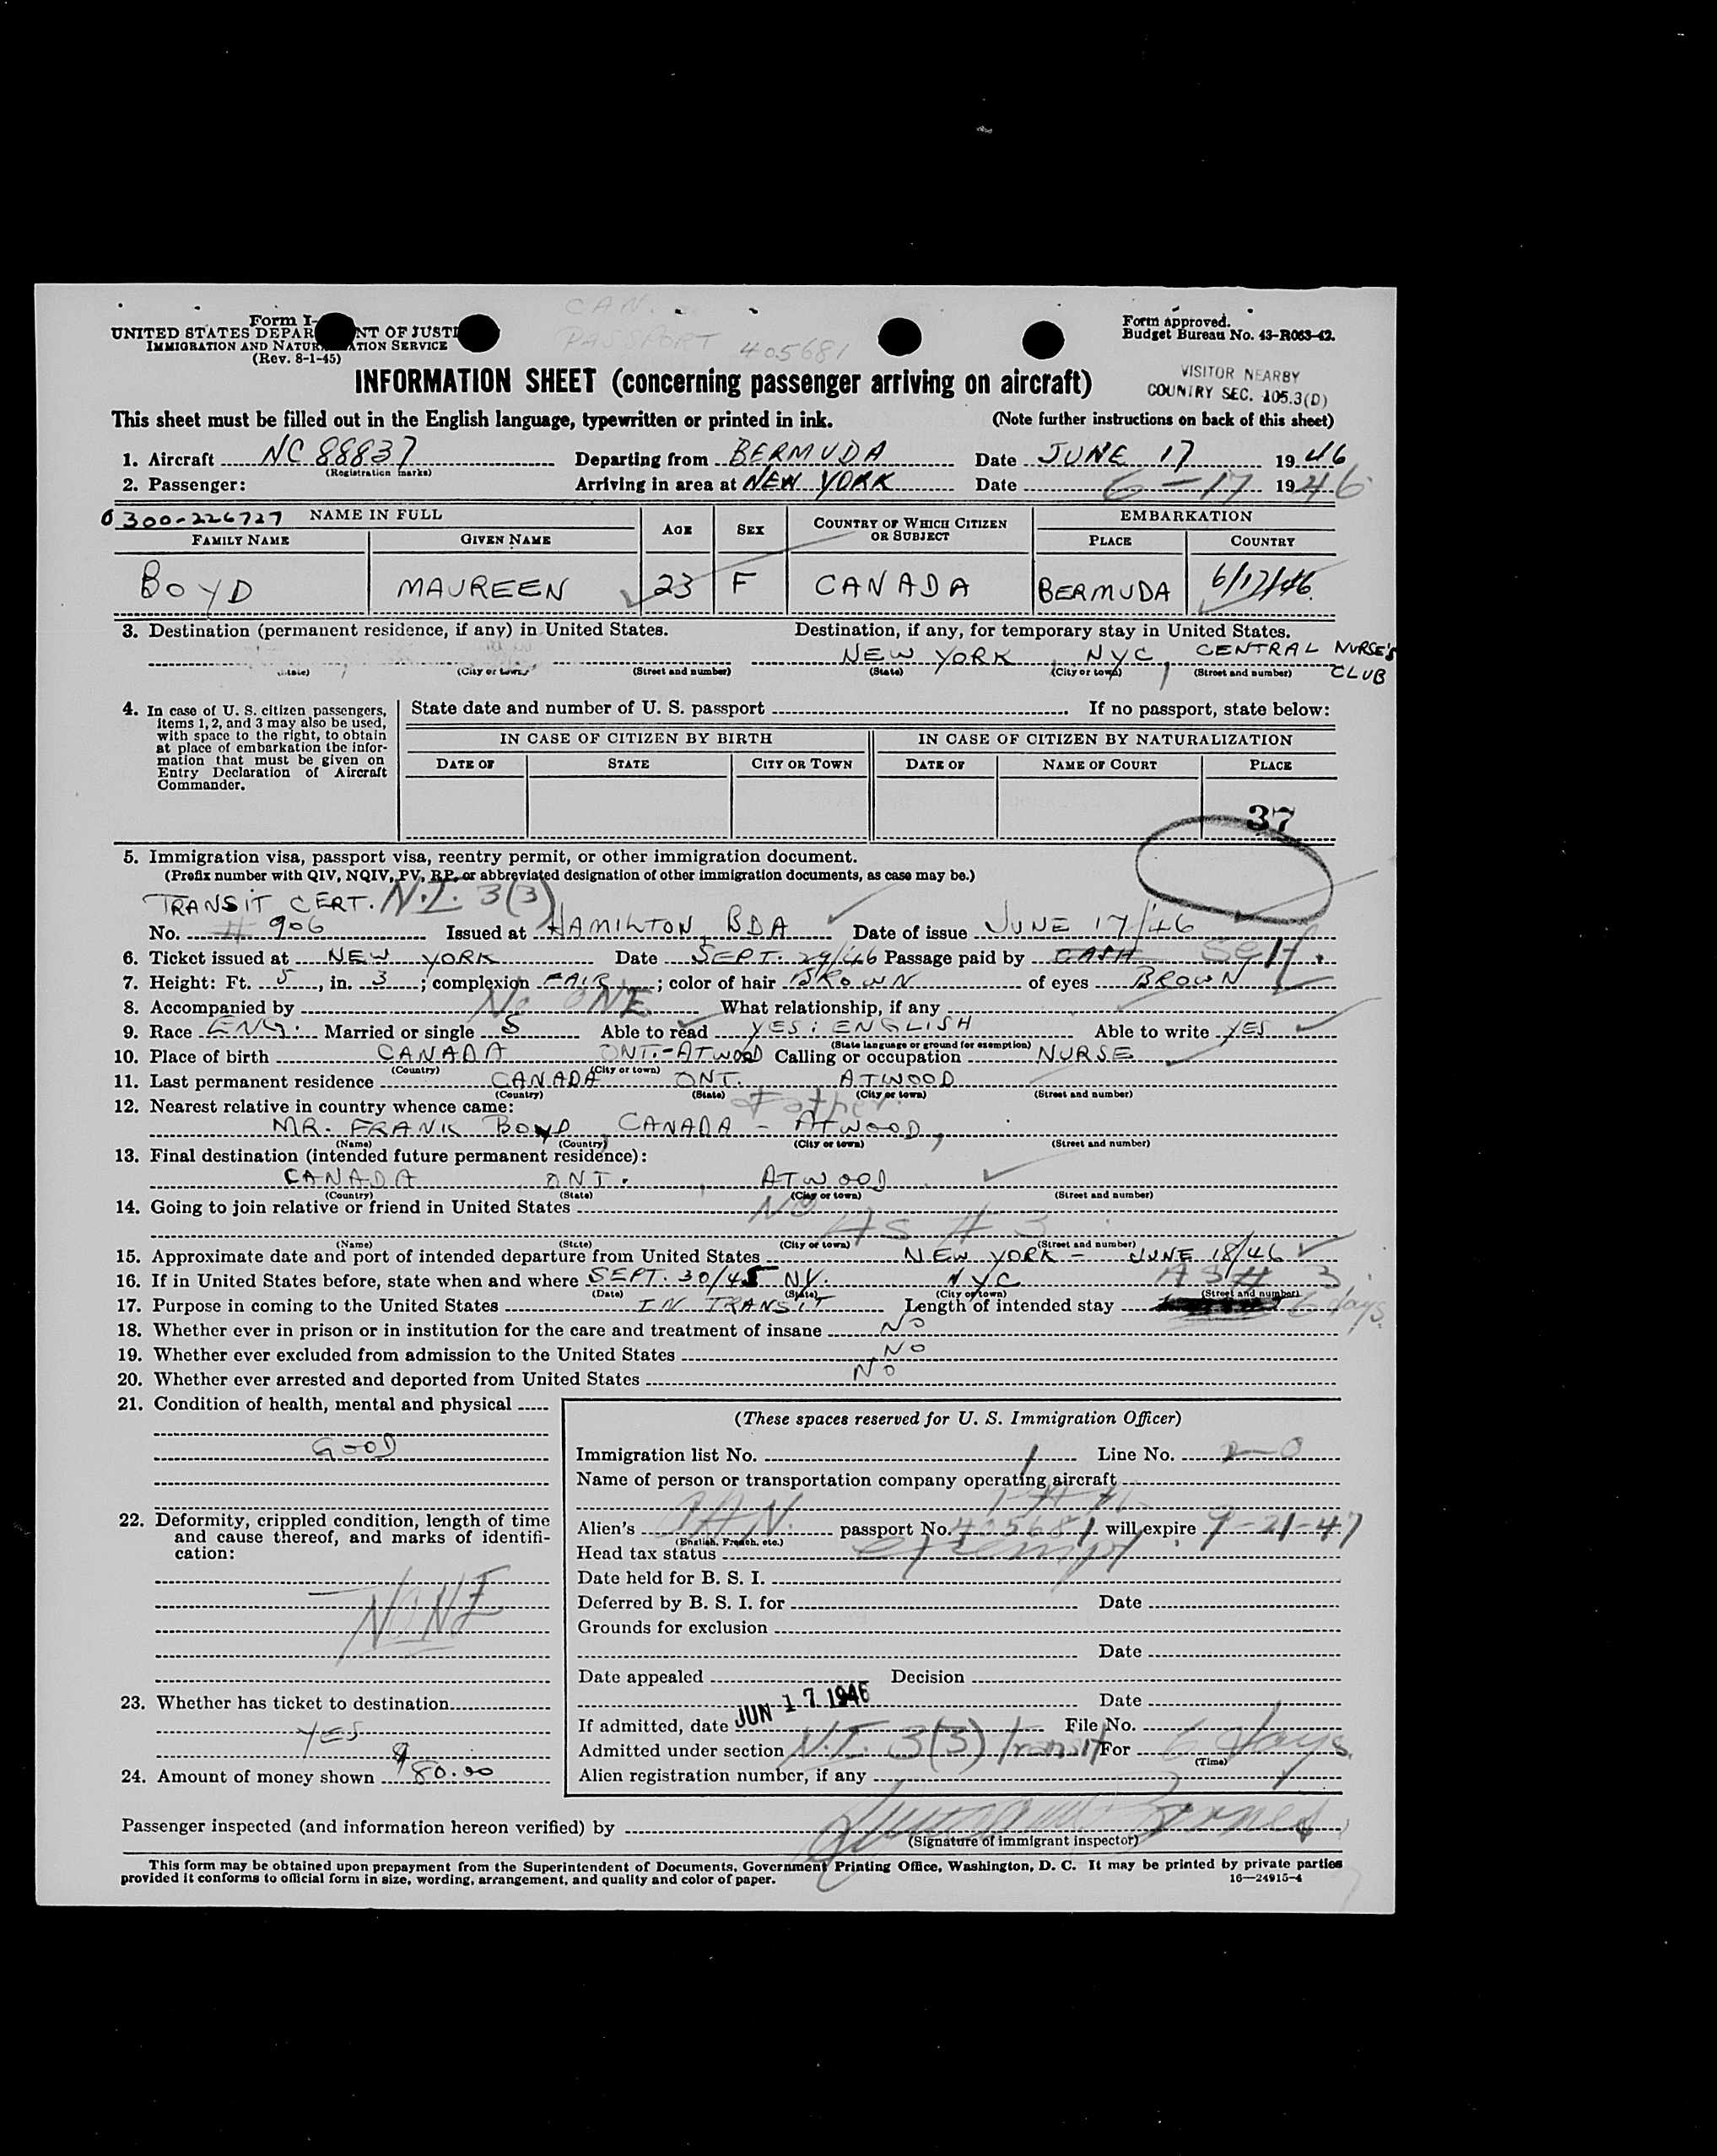 CAN.
PASSPORT 405681
Form I-
UNITED STATES DEPAR NT OF JUSTI
IMMIGRATION AND NATUR ATION SERVICE
(Rev. 8-1-45)
Form approved.
Budget Bureau No. 43-R063-42.
VISITOR NEARBY
COUNTRY SEC. 105.3(D)
INFORMATION SHEET (concerning passenger arriving on aircraft)
This sheet must be filled out in the English language, typewritten or printed in ink. (Note further instructions on back of this sheet)
1. Aircraft NC 88837 Departing from BERMUDA Date JUNE 17 1946
(Registration marks)
2. Passenger: Arriving in area at NEW YORK Date 6-17 1946
0300-226727 NAME IN FULL AGE SEX COUNTRY OF WHICH CITIZEN OR SUBJECT EMBARKATION
FAMILY NAME GIVEN NAME PLACE COUNTRY
BOYD MAUREEN 23 F CANADA BERMUDA 6/17/46
3. Destination (permanent residence, if any) in United States. Destination, if any, for temporary stay in United States.
NEW YORK, NYC, CENTRAL NURSE'S CLUB
(State) (City or town) (Street and number) (State) (City or town) (Street and number)
4. In case of U. S. citizen passengers, items 1, 2, and 3 may also be used, with space to the right, to obtain at place of embarkation the information that must be given on Entry Declaration of Aircraft Commander.
State date and number of U. S. passport If no passport, state below:
IN CASE OF CITIZEN BY BIRTH IN CASE OF CITIZEN BY NATURALIZATION
DATE OF STATE CITY OR TOWN DATE OF NAME OF COURT PLACE
37
5. Immigration visa, passport visa, reentry permit, or other immigration document.
(Prefix number with QIV, NQIV, PV, RP, or abbreviated designation of other immigration documents, as case may be.)
TRANSIT CERT. N.I. 3(3)
No. # 906 Issued at HAMILTON, BDA Date of issue JUNE 17/46
6. Ticket issued at NEW YORK Date SEPT. 29/46 Passage paid by CASH Self
7. Height: Ft. 5, in. 3; complexion FAIR; color of hair BROWN of eyes BROWN
8. Accompanied by No ONE What relationship, if any
9. Race ENG. Married or single S Able to read YES: ENGLISH Able to write YES
(State language or ground for exemption)
10. Place of birth CANADA ONT.-ATWOOD Calling or occupation NURSE
(Country) (City or town)
11. Last permanent residence CANADA ONT. ATWOOD
(Country) (State) (City or town) (Street and number)
12. Nearest relative in country whence came: Father
MR. FRANK BOYD, CANADA - ATWOOD,
(Name) (Country) (City or town) (Street and number)
13. Final destination (intended future permanent residence):
CANADA, ONT., ATWOOD
(Country) (State) (City or town) (Street and number)
14. Going to join relative or friend in United States NO
AS # 3
(Name) (State) (City or town) (Street and number)
15. Approximate date and port of intended departure from United States NEW YORK - JUNE 18/46
16. If in United States before, state when and where SEPT. 30/45 NY. NYC AS # 3
(Date) (State) (City or town) (Street and number)
17. Purpose in coming to the United States IN TRANSIT Length of intended stay 6 days.
18. Whether ever in prison or in institution for the care and treatment of insane NO
19. Whether ever excluded from admission to the United States NO
20. Whether ever arrested and deported from United States NO
21. Condition of health, mental and physical
GOOD
22. Deformity, crippled condition, length of time and cause thereof, and marks of identification:
NONE
23. Whether has ticket to destination
YES
24. Amount of money shown $80.00
(These spaces reserved for U. S. Immigration Officer)
Immigration list No. 1 Line No.
Name of person or transportation company operating aircraft
Alien's CAN. passport No. 405681 will expire 9-21-47
(English, French, etc.)
Head tax status exempt
Date held for B. S. I.
Deferred by B. S. I. for Date
Grounds for exclusion
Date
Date appealed Decision
Date
If admitted, date JUN 17 1946 File No.
Admitted under section N.I. 3(3) Transit For 6 days
(Time)
Alien registration number, if any
Passenger inspected (and information hereon verified) by
(Signature of immigrant inspector)
This form may be obtained upon prepayment from the Superintendent of Documents, Government Printing Office, Washington, D. C. It may be printed by private parties
provided it conforms to official form in size, wording, arrangement, and quality and color of paper. 16—24915-4